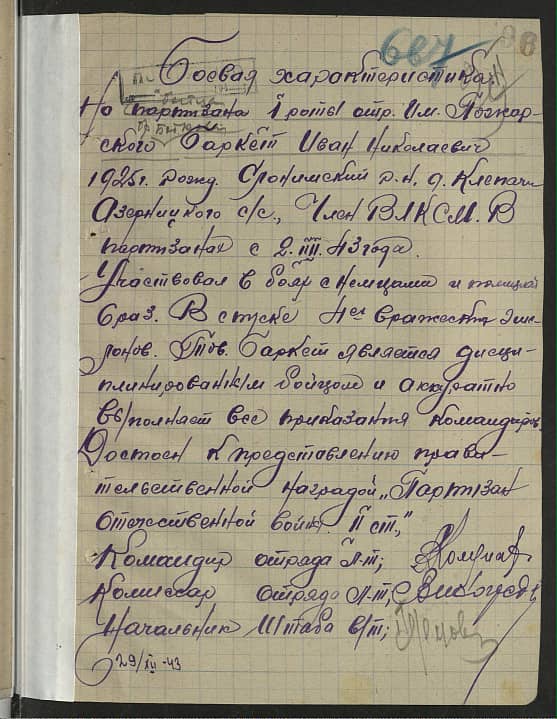 687
Боевая характеристика
На партизана I роты отр. Им. Пожар-
ского Баркет Иван Николаевич
1925г. рожд. Слонимский р.н, д. Клепачи
Азерницкого с/с., Член ВЛКСМ. В
партизанах с 2.III.43 года.
Участвовал в боях с немцами и полицией
6 раз. В спуске 4ех вражеских эше-
лонов. Тов. Баркет является дисци-
плинированным бойцом и аккуратно
выполняет все приказания командиров.
Достоен к представлению прави-
тельственной наградой „Партизан
Отечественной войны II ст.,"
Командир отряда Л-т;
Комиссар отряда Л-т;
Начальник Штаба в/т;
29/XII-43